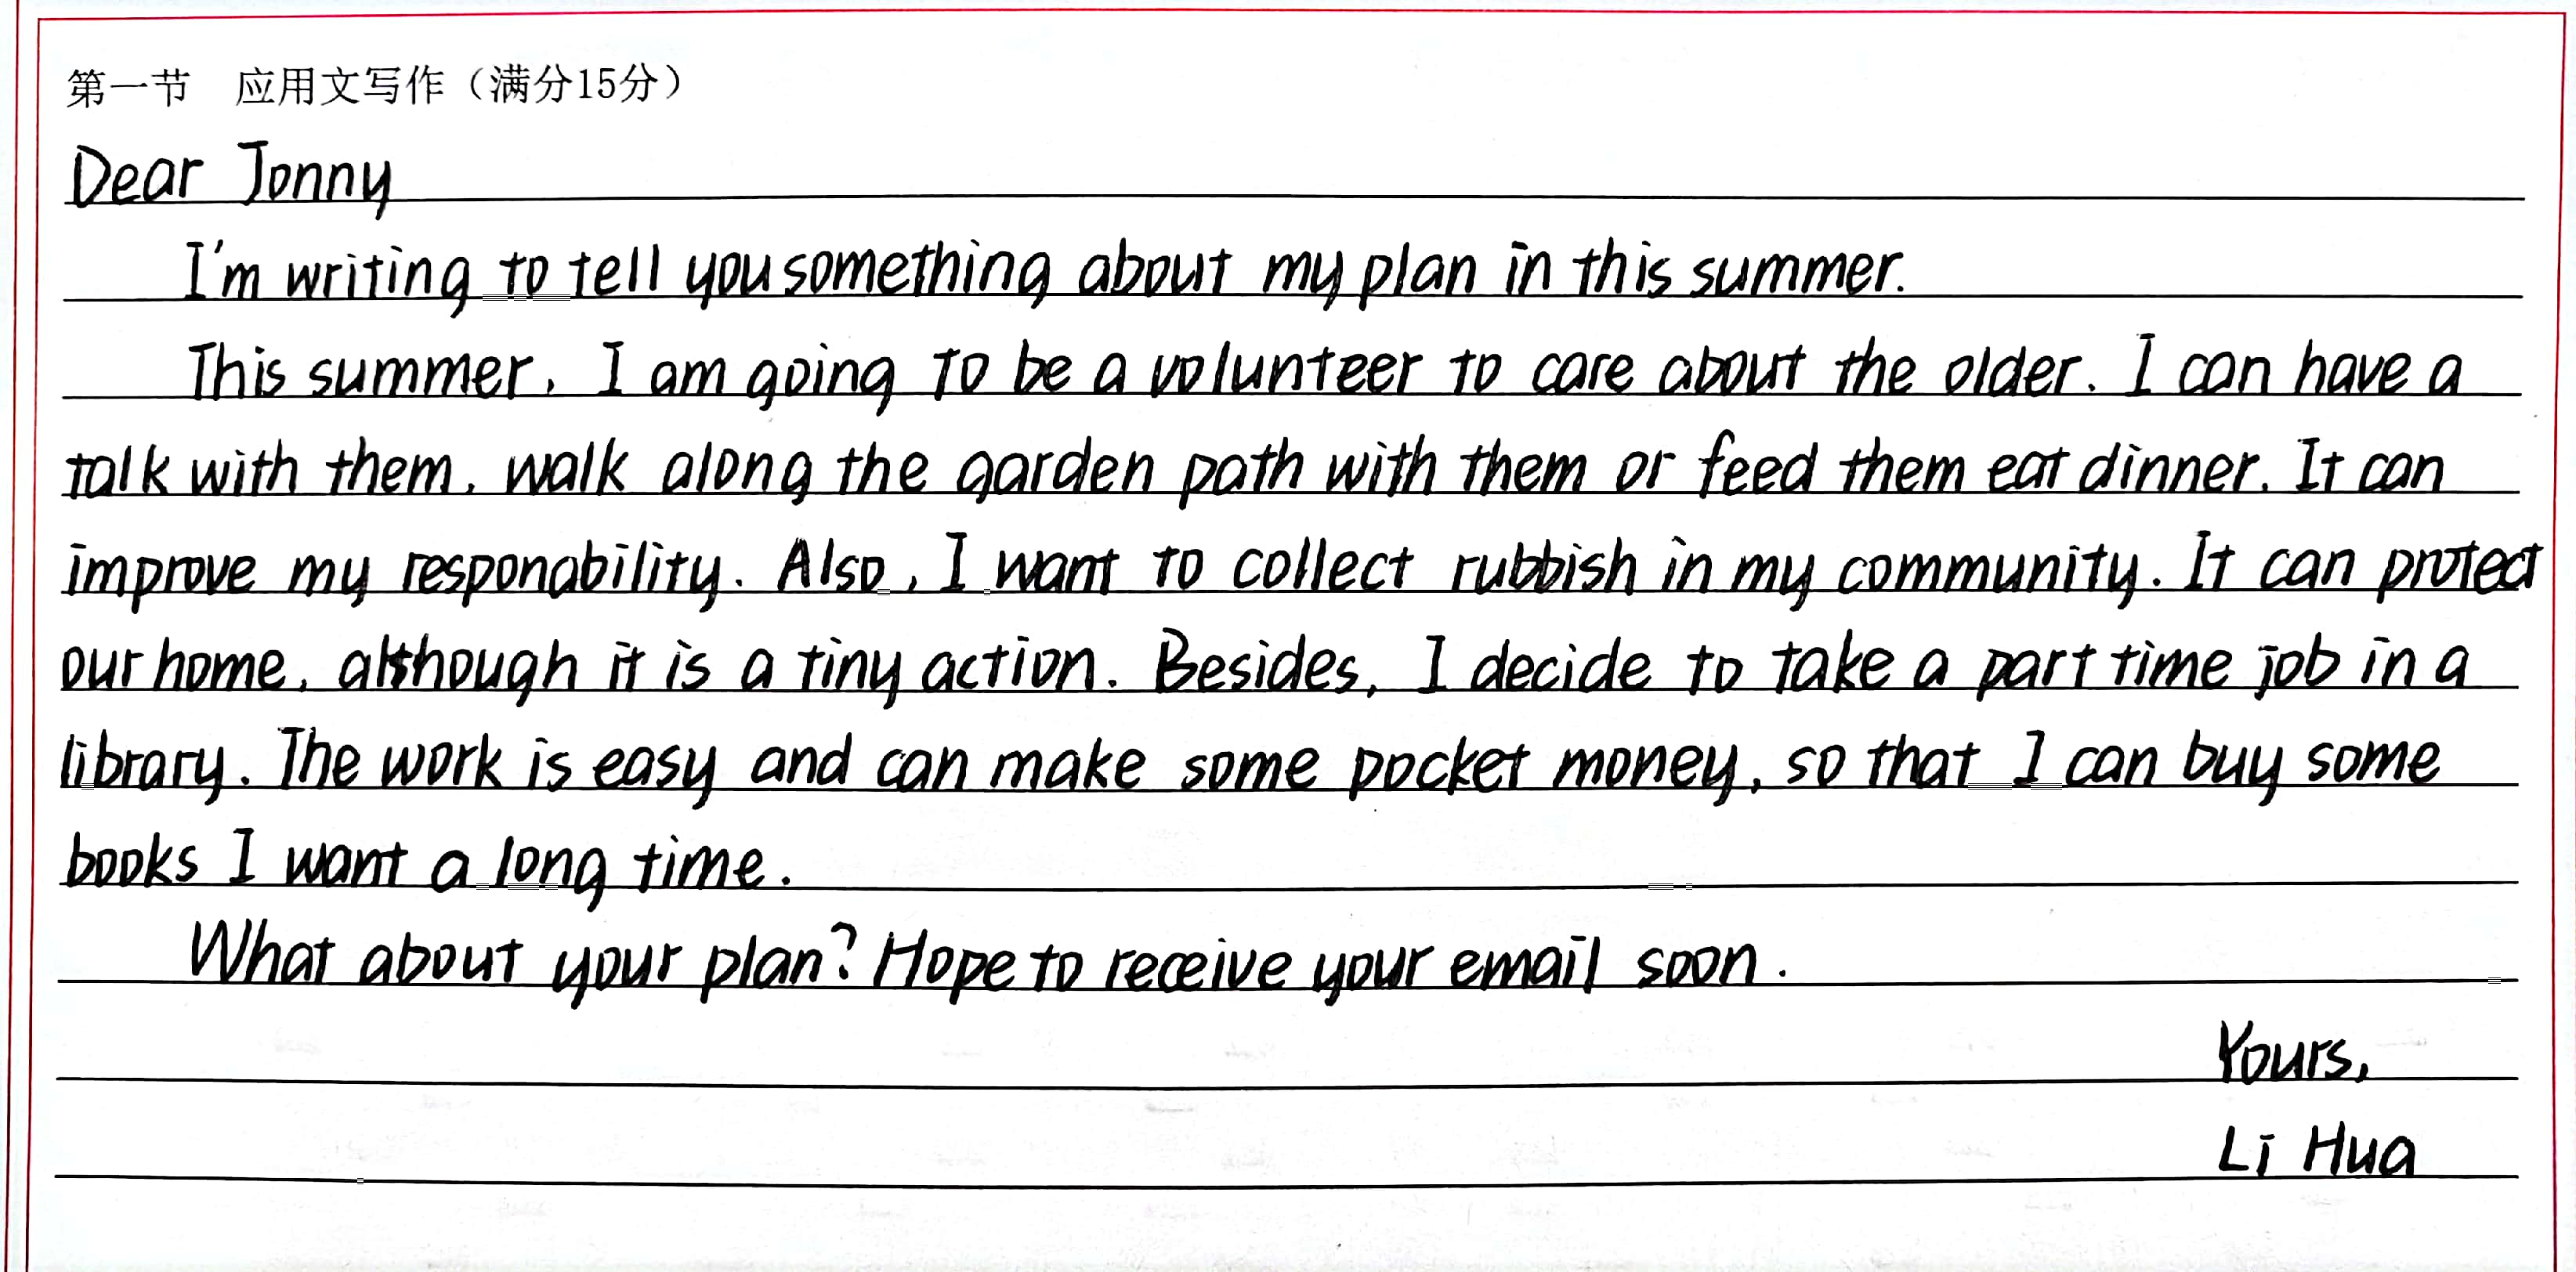 第一节 应用文写作（满分15分）
Dear Jonny
I'm writing to tell you something about my plan in this summer.
This summer, I am going to be a volunteer to care about the older. I can have a
talk with them, walk along the garden path with them or feed them eat dinner. It can
improve my responability. Also, I want to collect rubbish in my community. It can protect
our home, although it is a tiny action. Besides, I decide to take a part time job in a
library. The work is easy and can make some pocket money, so that I can buy some
books I want a long time.
What about your plan? Hope to receive your email soon.
Yours,
Li Hua